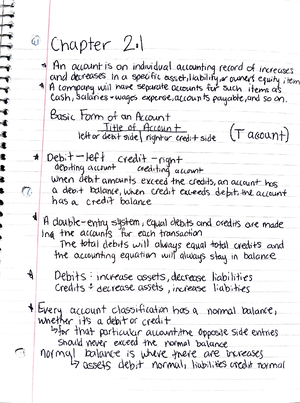 Chapter 2.1
* An account is an individual accounting record of increases
and decreases in a specific asset, liability, or owners equity item
* A company will have separate accounts for such items as
cash, salaries + wages expense, accounts payable, and so on.
Basic Form of an Account
Title of Account
left or debit side | right or credit side (T account)
* Debit - left credit - right
debiting account crediting account
when debit amounts exceed the credits, an account has
a debit balance, when credit exceeds debit the account
has a credit balance
* A double-entry system, equal debits and credits are made
in the accounts for each transaction
The total debits will always equal total credits and
the accounting equation will always stay in balance
* Debits: increase assets, decrease liabilities
Credits: decrease assets, increase liabities
* Every account classification has a normal balance,
whether it's a debit or credit
↳ for that particular account, the opposite side entries
should never exceed the normal balance
normal balance is where there are increases
↳ assets debit normal, liabilities credit normal